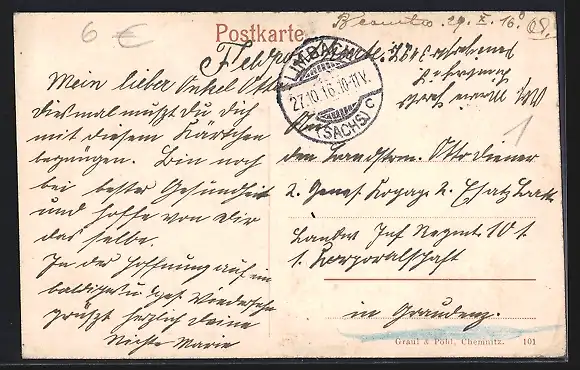 6 €
Postkarte
29. X. 16.
Feldpost
LIMBACH
27.10.16.10-11V.
(SACHS) C
Mein lieber Onkel Otto
Diesmal mußt du dich
mit diesem Kärtchen
begnügen. Bin noch
bei bester Gesundheit
und hoffe von Dir
das selbe.
In der Hoffnung auf ein
baldiges Wiedersehn
grüßt herzlich Deine
Nichte Marie
An
den Landstrm. Otto Diener
2. Genes. Kopag. 2. Ersatz Batt.
Landw Inf Regmt. 101.
1. Korporalschaft
in Graudenz.
1
Graul & Pöhl, Chemnitz. 101